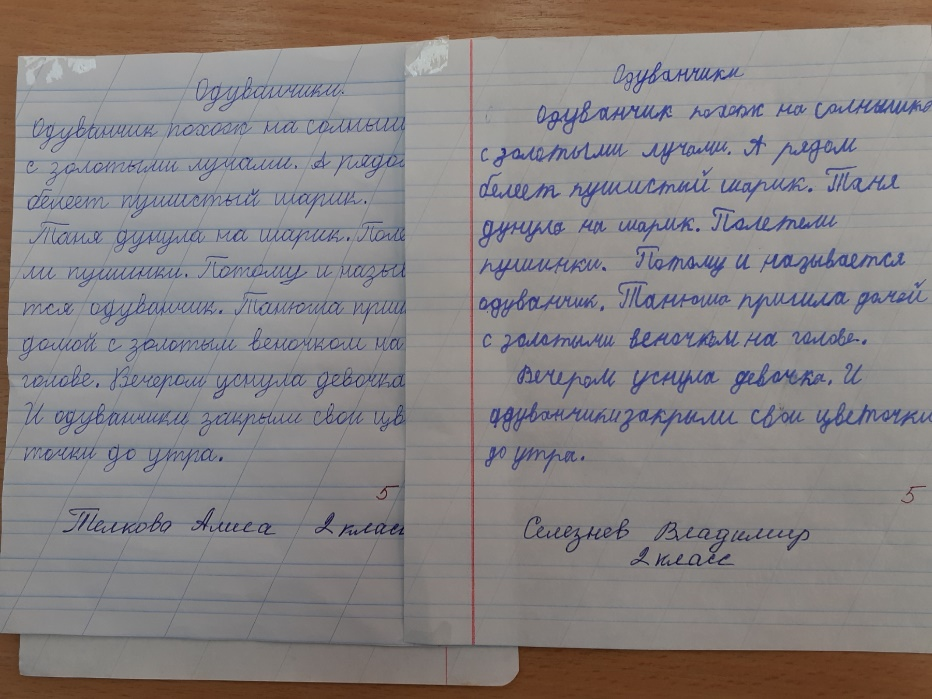 Одуванчики.
Одуванчик похож на солныш
с золотыми лучами. А рядо
белеет пушистый шарик.
Таня дунула на шарик. Поле
ли пушинки. Потому и назыв
тся одуванчик. Танюша приш
домой с золотым веночком на
голове. Вечером уснула девочка
И одуванчики закрыли свои цв
точки до утра.
5
Телкова Алиса 2 класс
Одуванчики
Одуванчик похож на солнышко
с золотыми лучами. А рядом
белеет пушистый шарик. Таня
дунула на шарик. Полетели
пушинки. Потому и называется
одуванчик. Танюша пришла домой
с золотыми веночком на голове.
Вечером уснула девочка. И
одуванчики закрыли свои цветочки
до утра.
5
Селезнев Владимир
2 класс